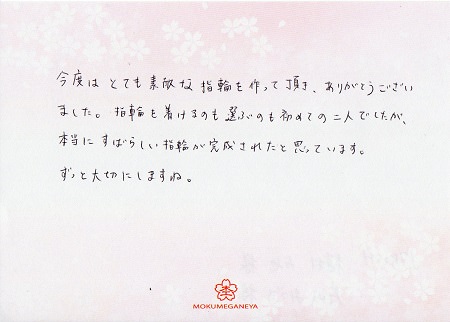 今度は とても素敵な指輪を作って頂き、ありがとうござい
ました。指輪を着けるのも選ぶのも初めての二人でしたが、
本当にすばらしい指輪が完成されたと思っています。
ずっと大切にしますね。
MOKUMEGANEYA